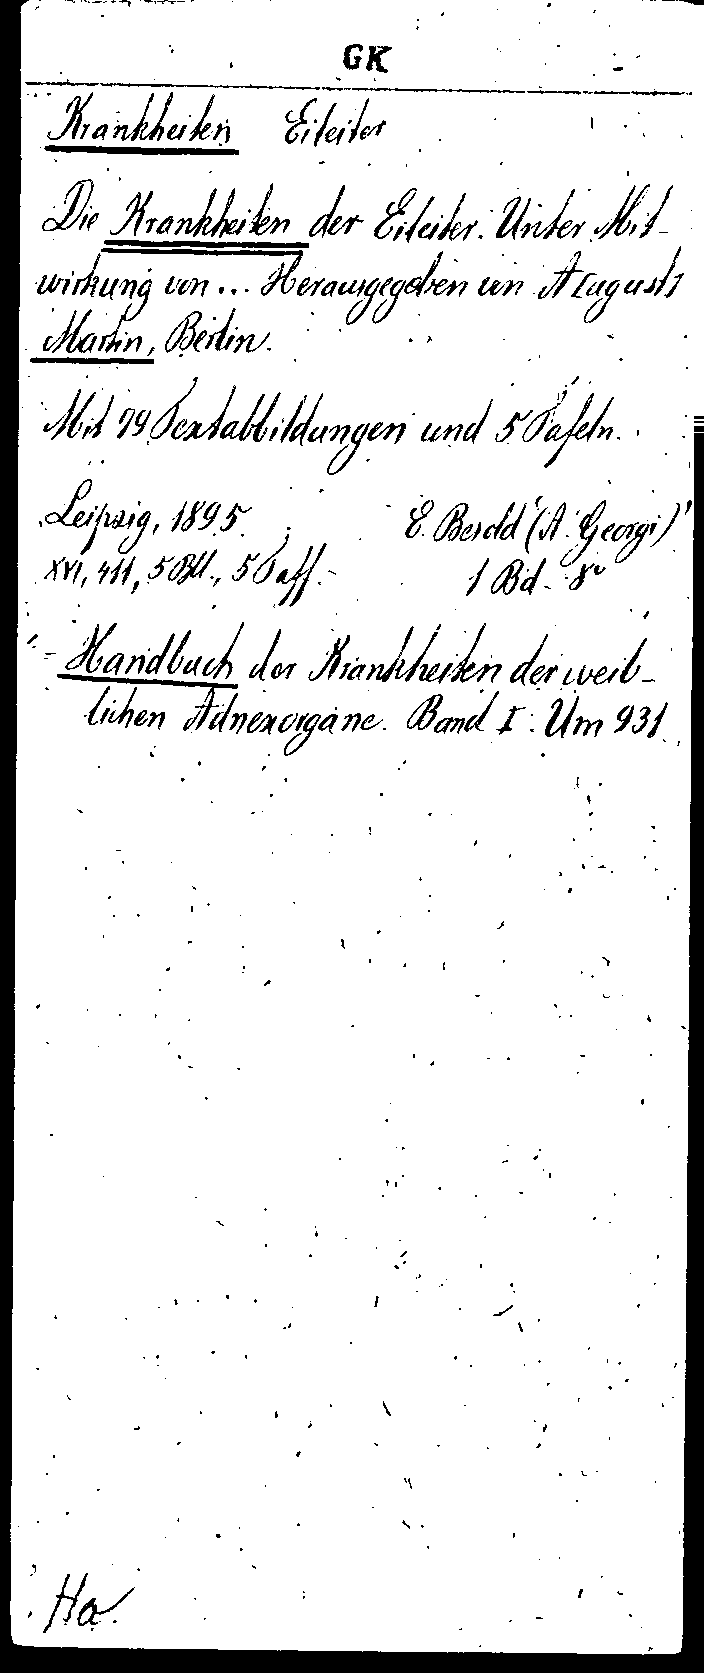 GK
Krankheiten Eileiter
Die Krankheiten der Eileiter. Unter Mit-
wirkung von... Herausgegeben von A[ugust]
Martin, Berlin.
Mit 99 Textabbildungen und 5 Tafeln.
Leipzig, 1895. E. Besold (A. Georgi)
XVI, 411, 5 Bll., 5 Taff. - 1 Bd. 8°
- Handbuch der Krankheiten der weib-
lichen Adnexorgane. Band I. Um 931
Ha.